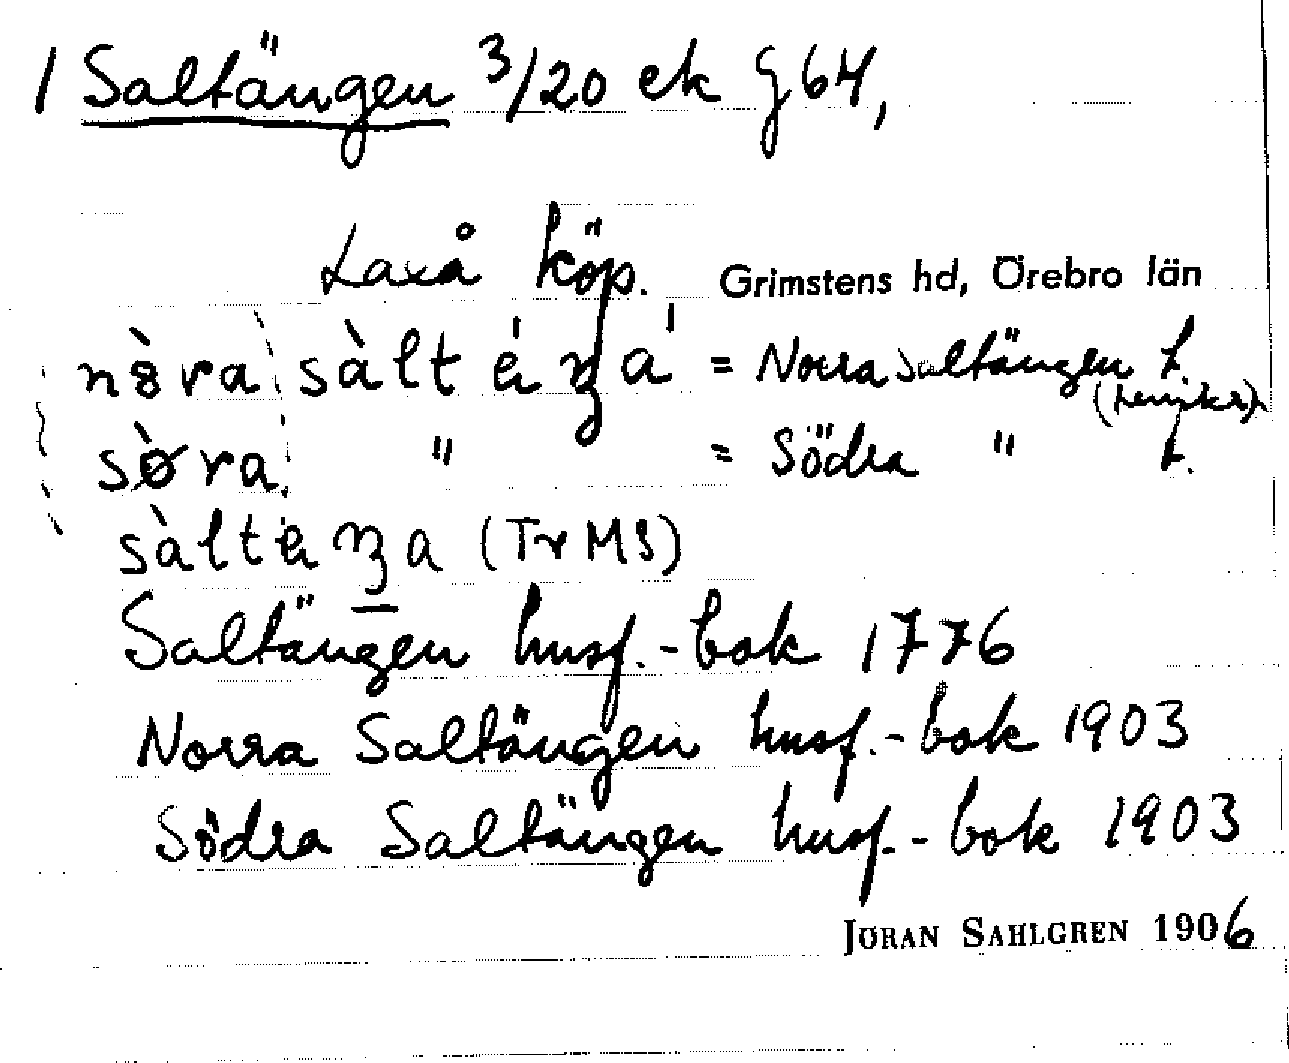 1 Saltängen 3/20 ek g 64,
Laxå köp. Grimstens hd, Örebro län
nòra sàltéŋa = Norra Saltängen t.
søra " = Södra " t.
sàltéŋa (Tr MS)
Saltängen husf.-bok 1776
Norra Saltängen husf.-bok 1903
Södra Saltängen husf.-bok 1903
JÖRAN SAHLGREN 1906